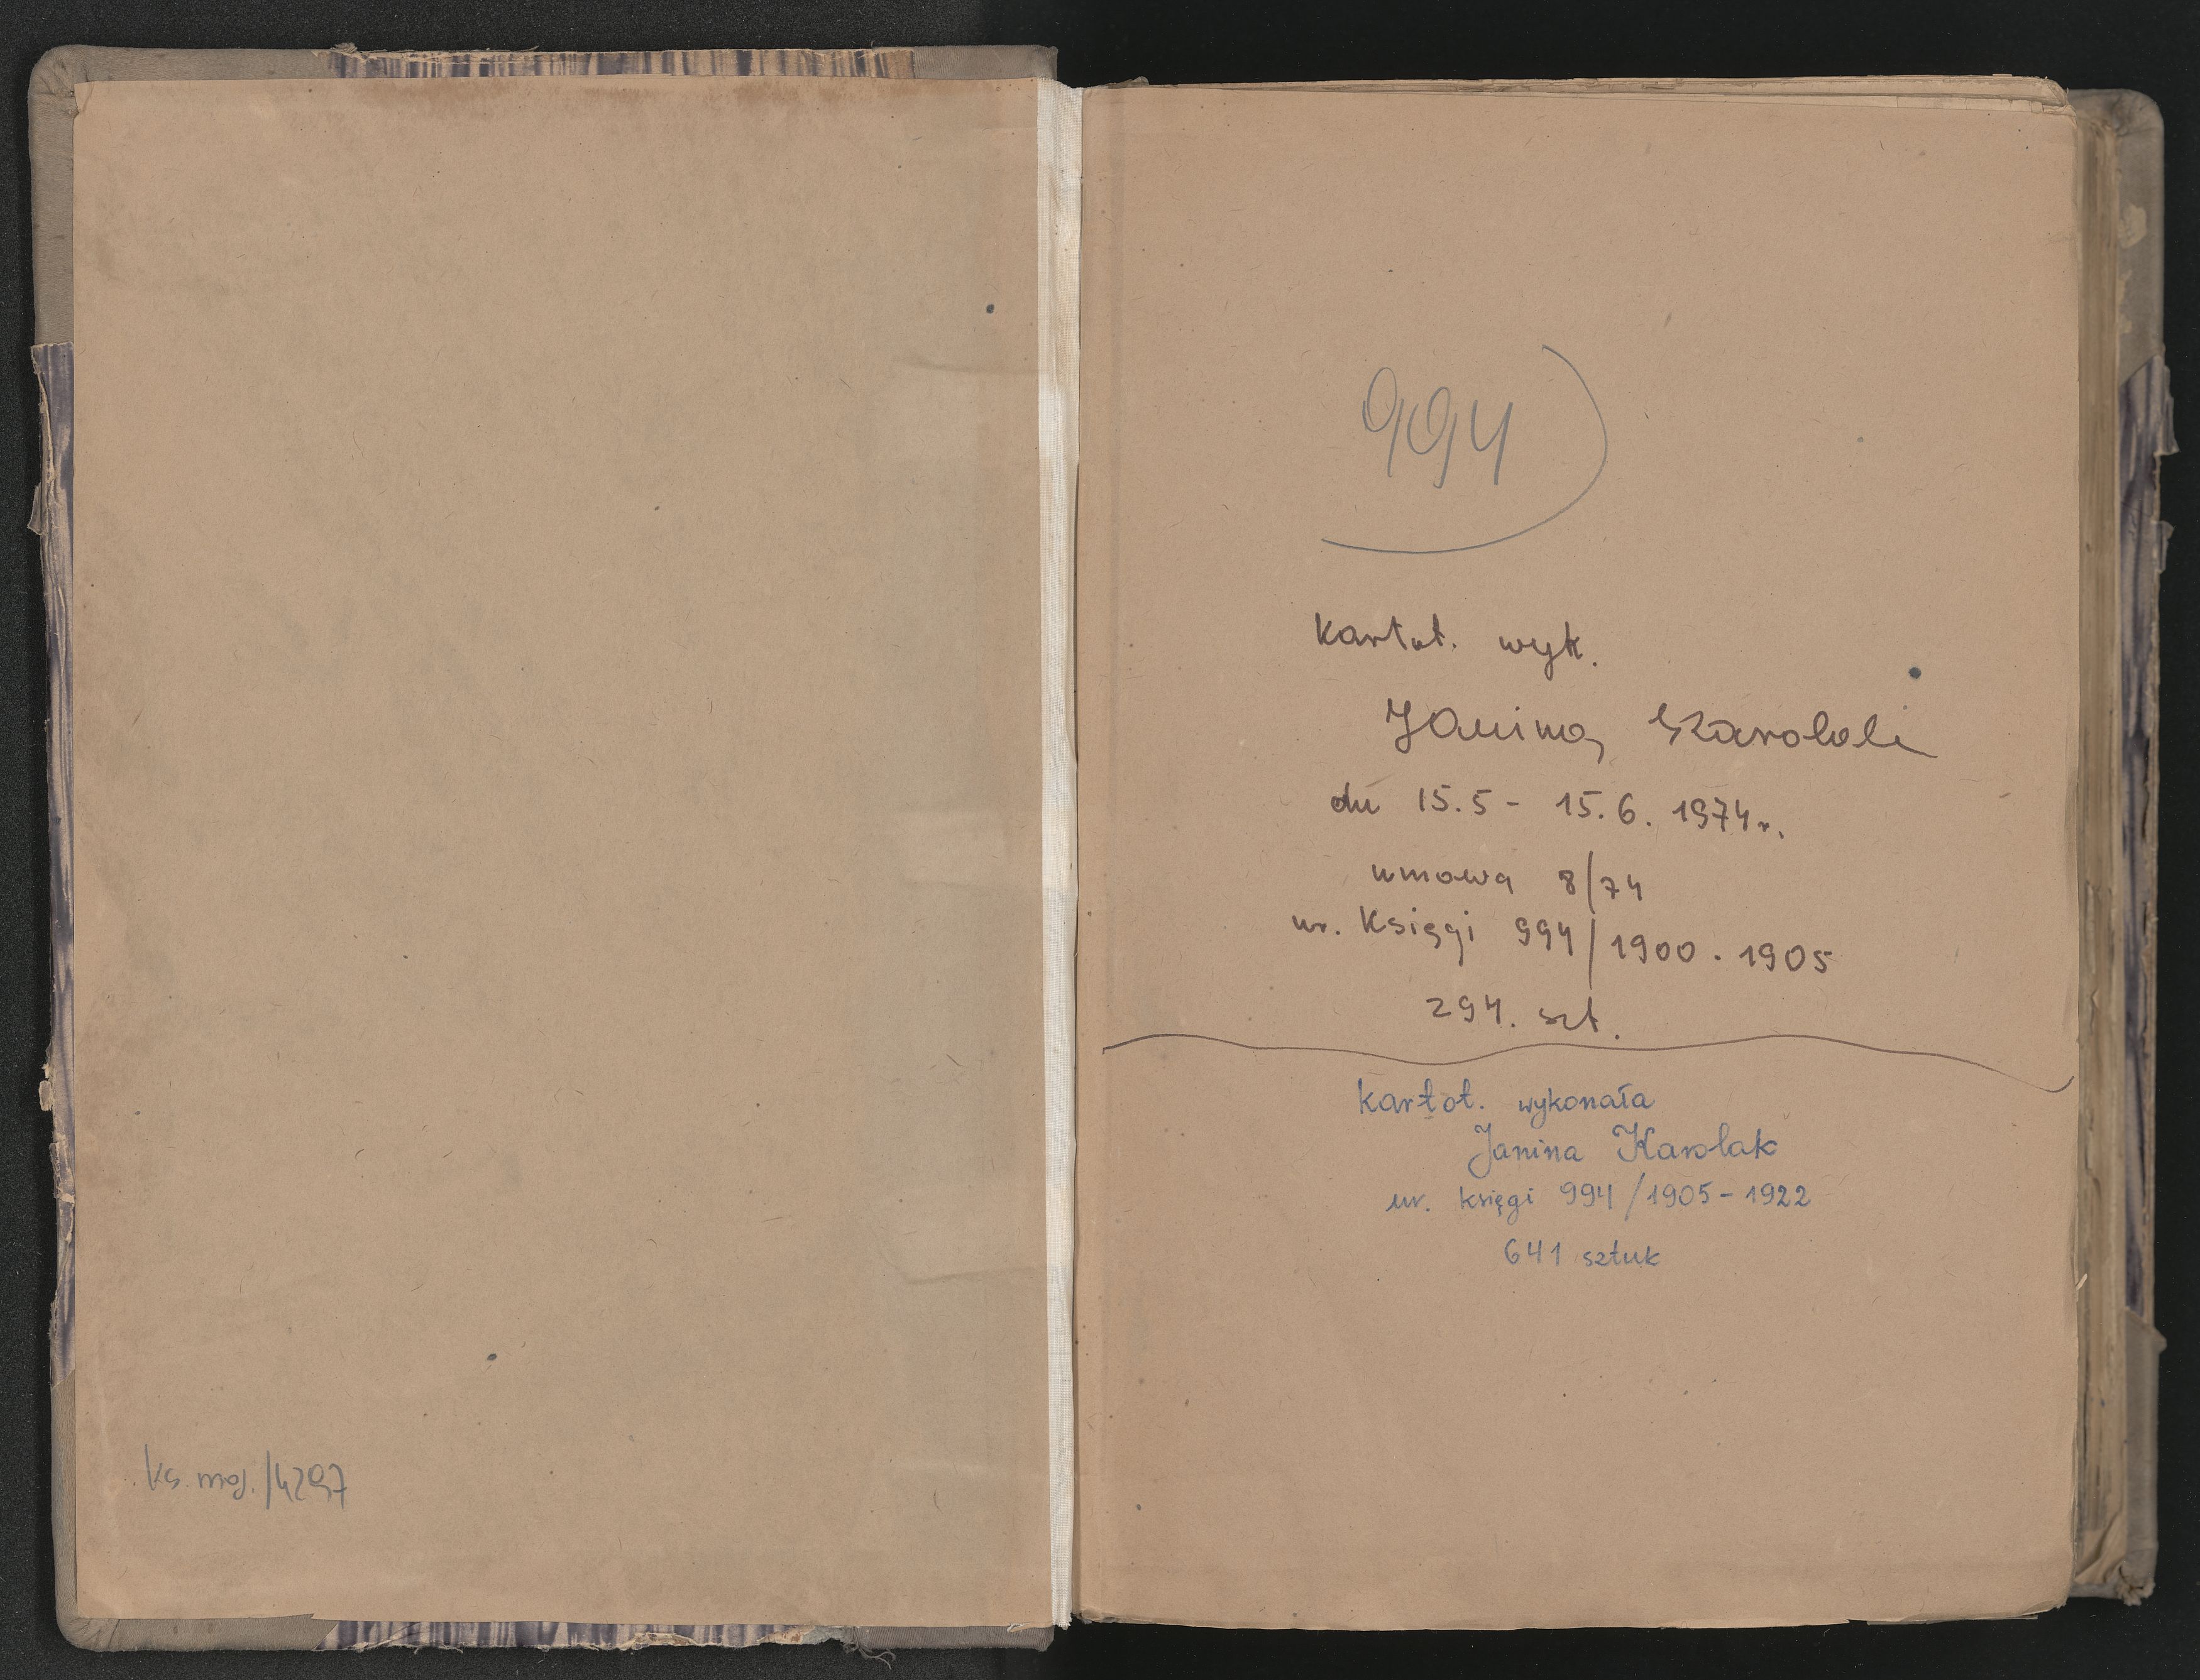 994
Kartot. wyk.
Janina Karolak
dn 15.5 - 15.6. 1974r.
umowa 8/74
nr. Księgi 994/1900 - 1905
294. szt.
kartot. wykonała
Janina Karolak
nr. księgi 994/1905-1922
641 sztuk